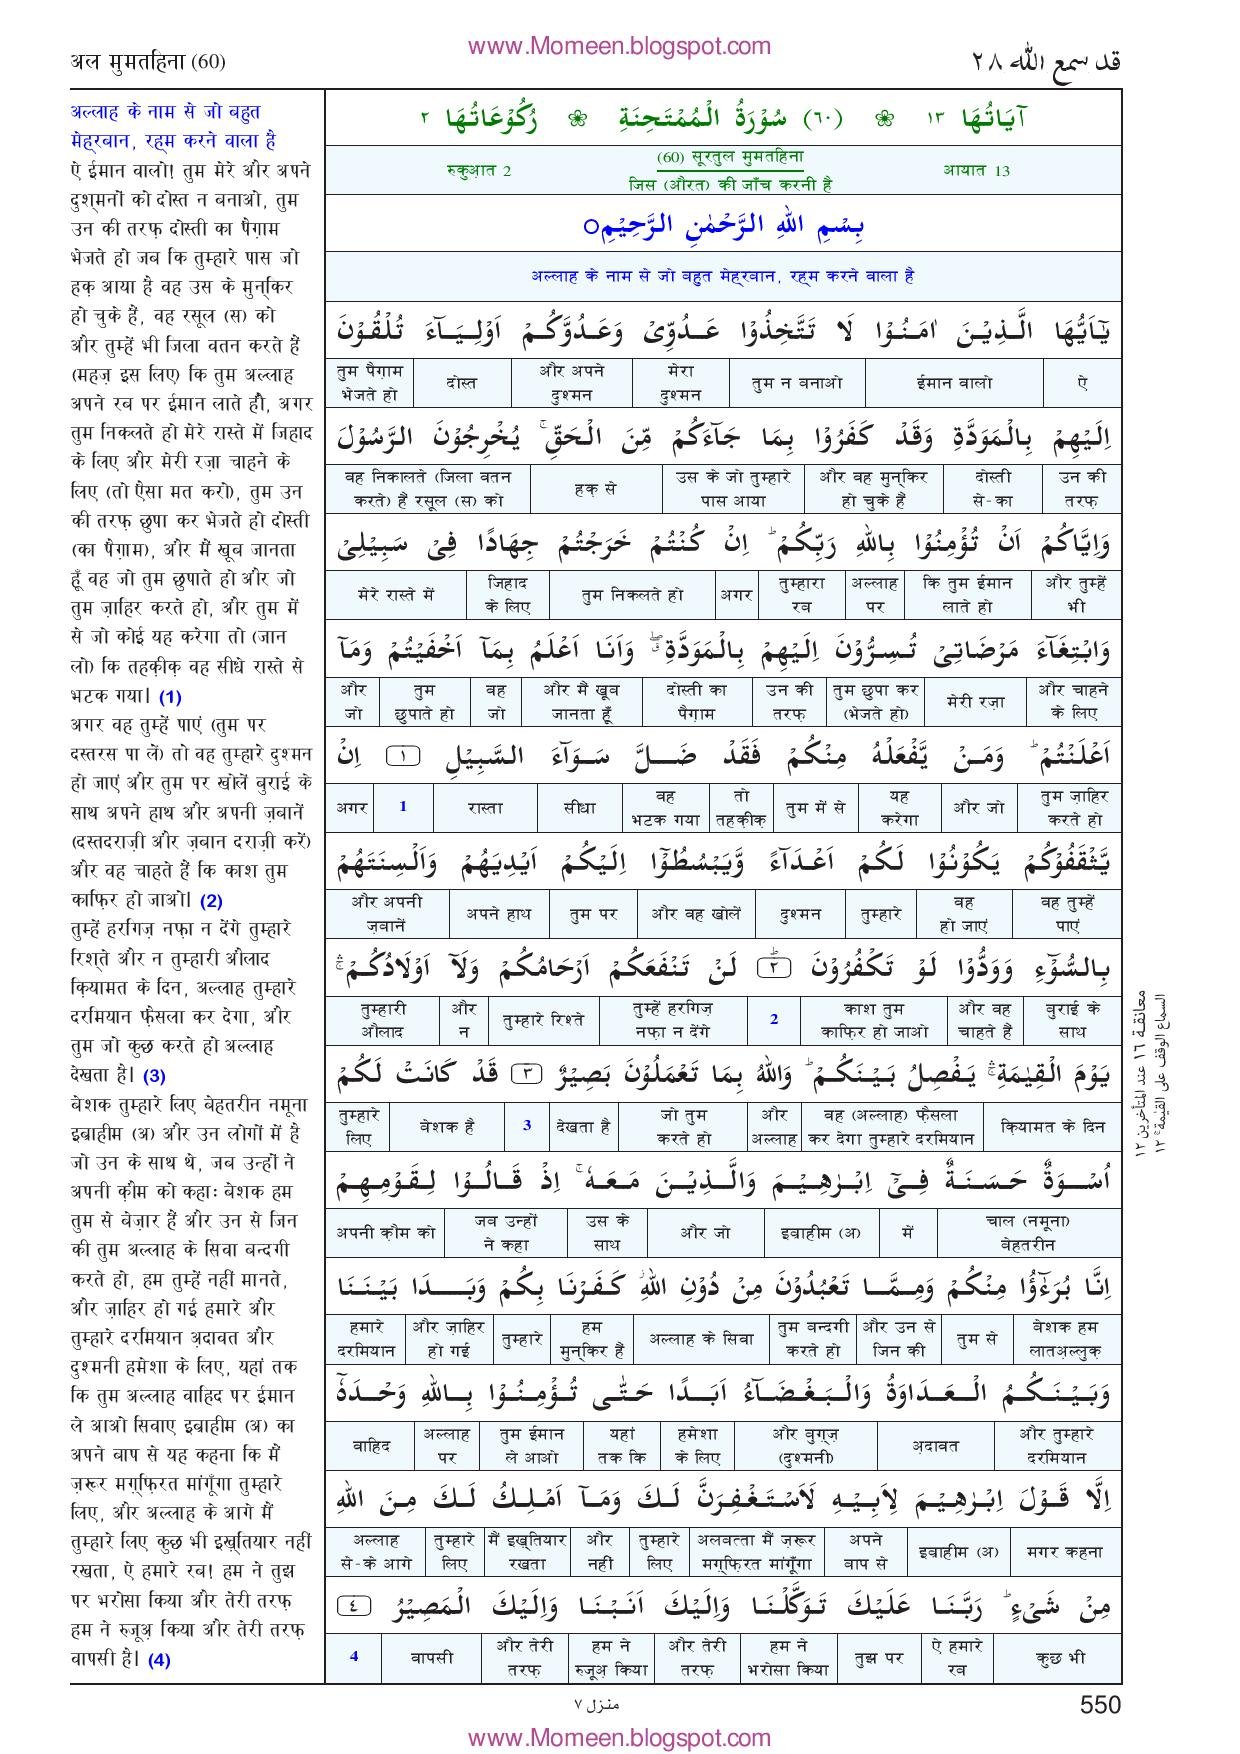 www.Momeen.blogspot.com
अल मुमतहिना (60)
قد سمع الله ٢٨
अल्लाह के नाम से जो बहुत
मेह्रबान, रह्म करने वाला है
ऐ ईमान वालो! तुम मेरे और अपने
दुश्मनों को दोस्त न बनाओ, तुम
उन की तरफ़ दोस्ती का पैग़ाम
भेजते हो जब कि तुम्हारे पास जो
हक़ आया है वह उस के मुन्किर
हो चुके हैं, वह रसूल (स) को
और तुम्हें भी जिला वतन करते हैं
(महज़ इस लिए) कि तुम अल्लाह
अपने रब पर ईमान लाते हो, अगर
तुम निकलते हो मेरे रास्ते में जिहाद
के लिए और मेरी रज़ा चाहने के
लिए (तो ऐसा मत करो), तुम उन
की तरफ़ छुपा कर भेजते हो दोस्ती
(का पैग़ाम), और मैं खूब जानता
हूँ वह जो तुम छुपाते हो और जो
तुम ज़ाहिर करते हो, और तुम में
से जो कोई यह करेगा तो (जान
लो) कि तहक़ीक़ वह सीधे रास्ते से
भटक गया। (1)
अगर वह तुम्हें पाएं (तुम पर
दस्तरस पा लें) तो वह तुम्हारे दुश्मन
हो जाएं और तुम पर खोलें बुराई के
साथ अपने हाथ और अपनी ज़बानें
(दस्तदराज़ी और ज़बान दराज़ी करें)
और वह चाहते हैं कि काश तुम
काफ़िर हो जाओ। (2)
तुम्हें हरगिज़ नफ़ा न देंगे तुम्हारे
रिश्ते और न तुम्हारी औलाद
क़ियामत के दिन, अल्लाह तुम्हारे
दरमियान फ़ैसला कर देगा, और
तुम जो कुछ करते हो अल्लाह
देखता है। (3)
बेशक तुम्हारे लिए बेहतरीन नमूना
इब्राहीम (अ) और उन लोगों में है
जो उन के साथ थे, जब उन्हों ने
अपनी क़ौम को कहाः बेशक हम
तुम से बेज़ार हैं और उन से जिन
की तुम अल्लाह के सिवा बन्दगी
करते हो, हम तुम्हें नहीं मानते,
और ज़ाहिर हो गई हमारे और
तुम्हारे दरमियान अ़दावत और
दुश्मनी हमेशा के लिए, यहां तक
कि तुम अल्लाह वाहिद पर ईमान
ले आओ सिवाए इब्राहीम (अ) का
अपने बाप से यह कहना कि मैं
ज़रूर मग़्फ़िरत मांगूँगा तुम्हारे
लिए, और अल्लाह के आगे मैं
तुम्हारे लिए कुछ भी इख़्तियार नहीं
रखता, ऐ हमारे रब! हम ने तुझ
पर भरोसा किया और तेरी तरफ़
हम ने रुजूअ़ किया और तेरी तरफ़
वापसी है। (4)
آيَاتُهَا ١٣ ❀ (٦٠) سُوْرَةُ الْمُمْتَحِنَةِ ❀ رُكُوْعَاتُهَا ٢
रुकुआ़त 2 (60) सूरतुल मुमतहिना आयात 13
जिस (औरत) की जाँच करनी है
بِسْمِ اللهِ الرَّحْمٰنِ الرَّحِيْمِ○
अल्लाह के नाम से जो बहुत मेह्रबान, रह्म करने वाला है
يٰٓاَيُّهَا الَّذِيْنَ اٰمَنُوْا لَا تَتَّخِذُوْا عَدُوِّىْ وَعَدُوَّكُمْ اَوْلِيَآءَ تُلْقُوْنَ
तुम पैग़ाम भेजते हो | दोस्त | और अपने दुश्मन | मेरा दुश्मन | तुम न बनाओ | ईमान वालो | ऐ
اِلَيْهِمْ بِالْمَوَدَّةِ وَقَدْ كَفَرُوْا بِمَا جَآءَكُمْ مِّنَ الْحَقِّ ۚ يُخْرِجُوْنَ الرَّسُوْلَ
वह निकालते (जिला वतन करते) हैं रसूल (स) को | हक़ से | उस के जो तुम्हारे पास आया | और वह मुन्किर हो चुके हैं | दोस्ती से-का | उन की तरफ़
وَاِيَّاكُمْ اَنْ تُؤْمِنُوْا بِاللهِ رَبِّكُمْ ؕ اِنْ كُنْتُمْ خَرَجْتُمْ جِهَادًا فِىْ سَبِيْلِىْ
मेरे रास्ते में | जिहाद के लिए | तुम निकलते हो | अगर | तुम्हारा रब | अल्लाह पर | कि तुम ईमान लाते हो | और तुम्हें भी
وَابْتِغَآءَ مَرْضَاتِىْ تُسِرُّوْنَ اِلَيْهِمْ بِالْمَوَدَّةِ ۖ وَاَنَا اَعْلَمُ بِمَآ اَخْفَيْتُمْ وَمَآ
और जो | तुम छुपाते हो | वह जो | और मैं खूब जानता हूँ | दोस्ती का पैग़ाम | उन की तरफ़ | तुम छुपा कर (भेजते हो) | मेरी रज़ा | और चाहने के लिए
اَعْلَنْتُمْ ؕ وَمَنْ يَّفْعَلْهُ مِنْكُمْ فَقَدْ ضَلَّ سَوَآءَ السَّبِيْلِ ١ اِنْ
अगर | 1 | रास्ता | सीधा | वह भटक गया | तो तहक़ीक़ | तुम में से | यह करेगा | और जो | तुम ज़ाहिर करते हो
يَّثْقَفُوْكُمْ يَكُوْنُوْا لَكُمْ اَعْدَآءً وَّيَبْسُطُوْٓا اِلَيْكُمْ اَيْدِيَهُمْ وَاَلْسِنَتَهُمْ
और अपनी ज़बानें | अपने हाथ | तुम पर | और वह खोलें | दुश्मन | तुम्हारे | वह हो जाएं | वह तुम्हें पाएं
بِالسُّوْٓءِ وَوَدُّوْا لَوْ تَكْفُرُوْنَ ؕ ٢ لَنْ تَنْفَعَكُمْ اَرْحَامُكُمْ وَلَآ اَوْلَادُكُمْ ۛۚ
तुम्हारी औलाद | और न | तुम्हारे रिश्ते | तुम्हें हरगिज़ नफ़ा न देंगे | 2 | काश तुम काफ़िर हो जाओ | और वह चाहते हैं | बुराई के साथ
يَوْمَ الْقِيٰمَةِ ۛۚ يَفْصِلُ بَيْنَكُمْ ؕ وَاللهُ بِمَا تَعْمَلُوْنَ بَصِيْرٌ ٣ قَدْ كَانَتْ لَكُمْ
तुम्हारे लिए | बेशक है | 3 | देखता है | जो तुम करते हो | और अल्लाह | वह (अल्लाह) फ़ैसला कर देगा तुम्हारे दरमियान | क़ियामत के दिन
اُسْوَةٌ حَسَنَةٌ فِىْٓ اِبْرٰهِيْمَ وَالَّذِيْنَ مَعَهٗ ۚ اِذْ قَالُوْا لِقَوْمِهِمْ
अपनी क़ौम को | जब उन्हों ने कहा | उस के साथ | और जो | इब्राहीम (अ) | में | चाल (नमूना) बेहतरीन
اِنَّا بُرَءٰٓؤُا مِنْكُمْ وَمِمَّا تَعْبُدُوْنَ مِنْ دُوْنِ اللهِ ۡ كَفَرْنَا بِكُمْ وَبَدَا بَيْنَنَا
हमारे दरमियान | और ज़ाहिर हो गई | तुम्हारे | हम मुन्किर हैं | अल्लाह के सिवा | तुम बन्दगी करते हो | और उन से जिन की | तुम से | बेशक हम लातअ़ल्लुक़
وَبَيْنَكُمُ الْعَدَاوَةُ وَالْبَغْضَآءُ اَبَدًا حَتّٰى تُؤْمِنُوْا بِاللهِ وَحْدَهٗٓ
वाहिद | अल्लाह पर | तुम ईमान ले आओ | यहां तक कि | हमेशा के लिए | और बुग़्ज़ (दुश्मनी) | अ़दावत | और तुम्हारे दरमियान
اِلَّا قَوْلَ اِبْرٰهِيْمَ لِاَبِيْهِ لَاَسْتَغْفِرَنَّ لَكَ وَمَآ اَمْلِكُ لَكَ مِنَ اللهِ
अल्लाह से-के आगे | तुम्हारे लिए | मैं इख़्तियार रखता | और नही | तुम्हारे लिए | अलबत्ता मैं ज़रूर मग़्फ़िरत मांगूँगा | अपने बाप से | इब्राहीम (अ) | मगर कहना
مِنْ شَىْءٍ ؕ رَبَّنَا عَلَيْكَ تَوَكَّلْنَا وَاِلَيْكَ اَنَبْنَا وَاِلَيْكَ الْمَصِيْرُ ٤
4 | वापसी | और तेरी तरफ़ | हम ने रुजूअ़ किया | और तेरी तरफ़ | हम ने भरोसा किया | तुझ पर | ऐ हमारे रब | कुछ भी
معانقة ١٦ عند المتأخرين ١٢
السماع الوقف على القيٰمة ١٢
منزل ٧
550
www.Momeen.blogspot.com